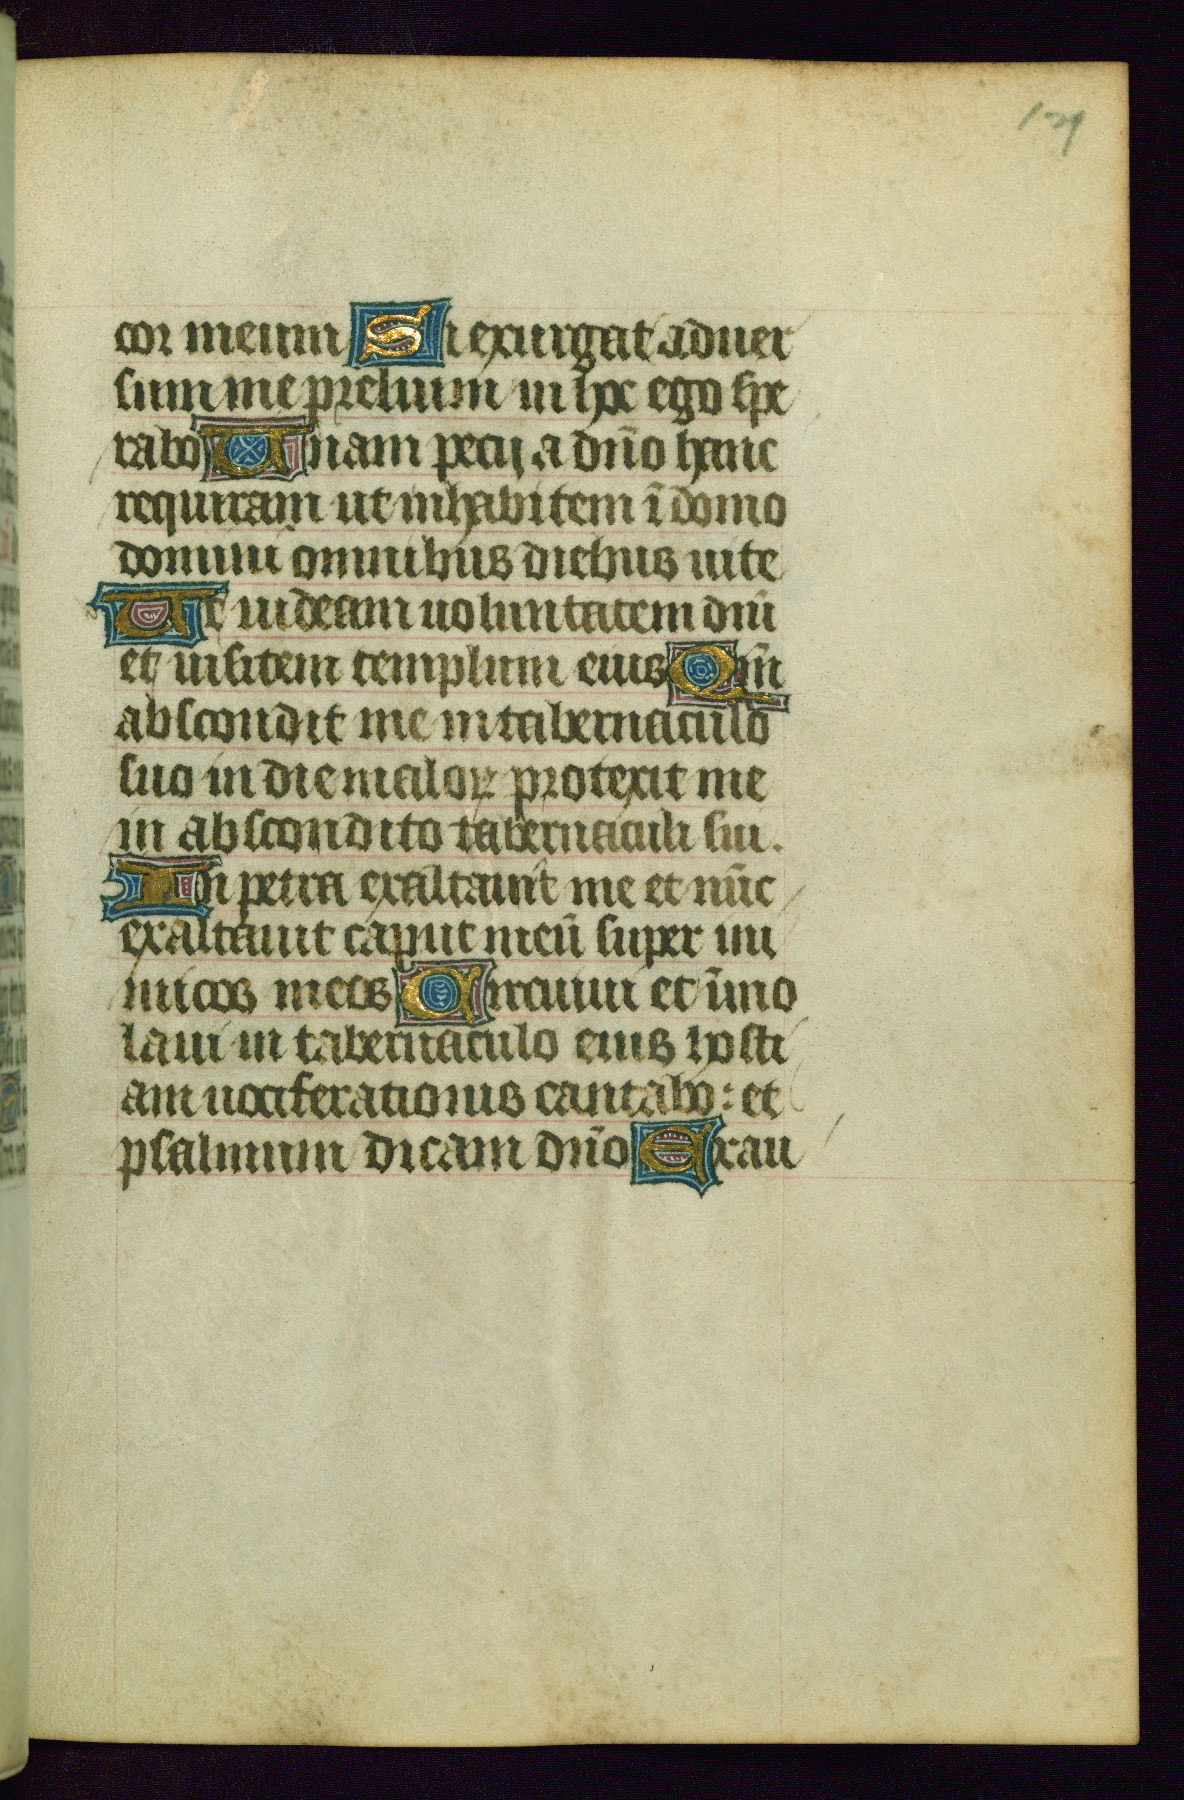 129
cor meum Si exurgat aduer
sum me prelium in hoc ego spe
rabo Unam pecij a dn̄o hanc
requiram ut inhabitem ī domo
domini omnibus diebus uite
Ut uideam uoluntatem dnī
et uisitem templum eius Qm̄
abscondit me in tabernaculo
suo in die maloꝝ protexit me
in abscondito tabernaculi sui.
In petra exaltauit me et nūc
exaltauit caput meū super ini
micos meos Circuiui et īmo
laui in tabernaculo eius hosti
am uociferationis cantabo: et
psalmum dicam dn̄o Exau